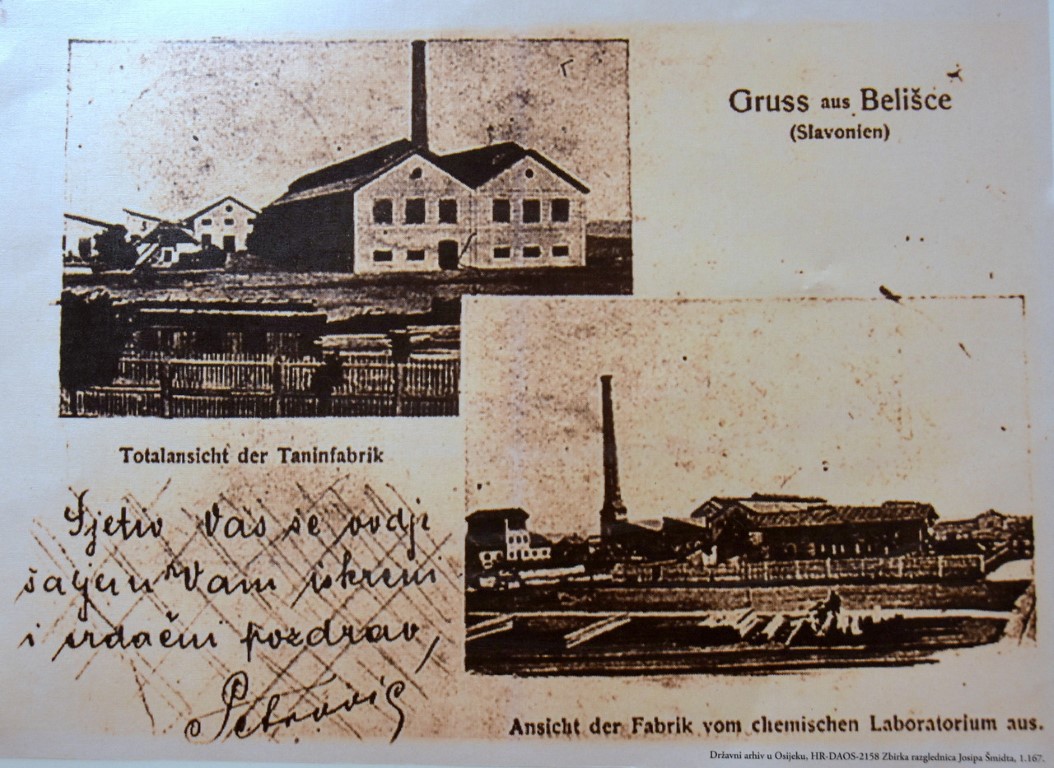 Gruss aus Belišce
(Slavonien)
Totalansicht der Taninfabrik
Sjetiv Vas se ovdje
šaljem Vam iskreni
i srdačni pozdrav,
Petrović
Ansicht der Fabrik vom chemischen Laboratorium aus.
Državni arhiv u Osijeku, HR-DAOS-2158 Zbirka razglednica Josipa Šmidta, 1.167.